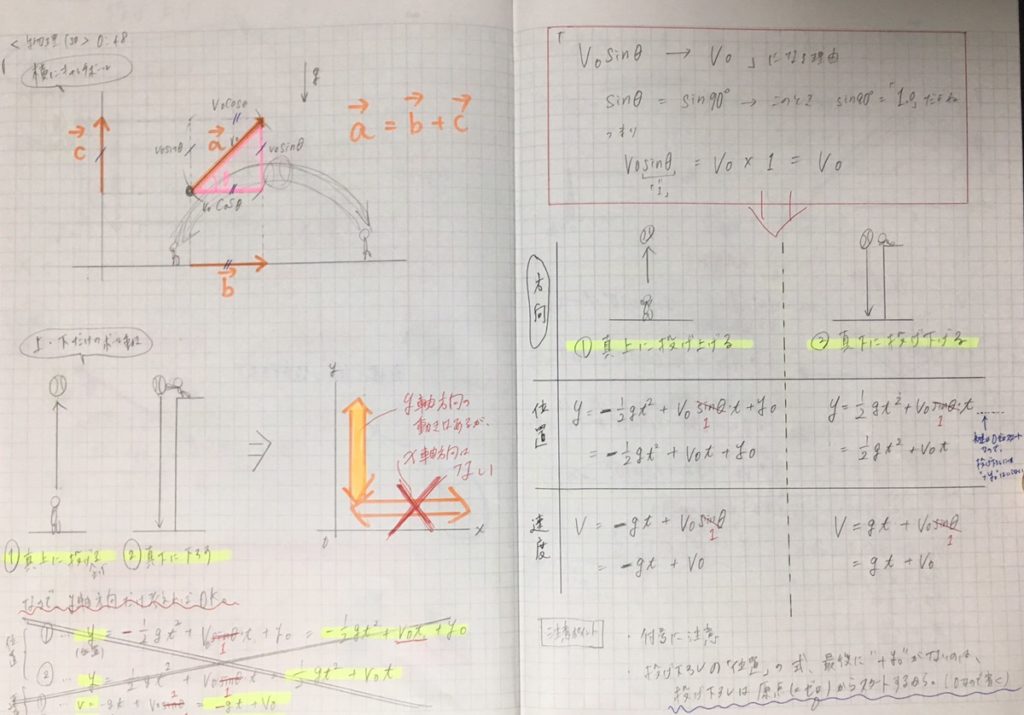 <物理(30)> 0:48
横に
g
a = b + c
c
V₀cosθ
a
V₀sinθ
V₀sinθ
V₀cosθ
b
上・下だけの
y
y軸方向の
動きはあるが、
x軸方向は
ない
⇒
0
x
①真上に投げる
②真下に下ろす
なので y軸方向だけ考えればOK。
位置
① … y = -½gt² + V₀sinθ·t + y₀ = -½gt² + V₀t + y₀
(位置)
1
② … y = ½gt² + V₀sinθ·t = ½gt² + V₀t
1
① … v = -gt + V₀sinθ = -gt + V₀
「V₀sinθ → V₀」になる理由
sinθ = sin90° → このとき sin90° = 「1.0」だよね
つまり
V₀sinθ = V₀ × 1 = V₀
"1"
方向
①真上に投げ上げる
②真下に投げ下げる
位置
y = -½gt² + V₀sinθ·t + y₀
1
= -½gt² + V₀t + y₀
y = ½gt² + V₀sinθ·t
1
= ½gt² + V₀t
速度
V = -gt + V₀sinθ
1
= -gt + V₀
V = gt + V₀sinθ
1
= gt + V₀
注意ポイント
・符号に注意
・投げ下ろしの"位置"の式、最後に"+y₀"がないのは、
投げ下ろしは原点(=ゼロ)からスタートするから。